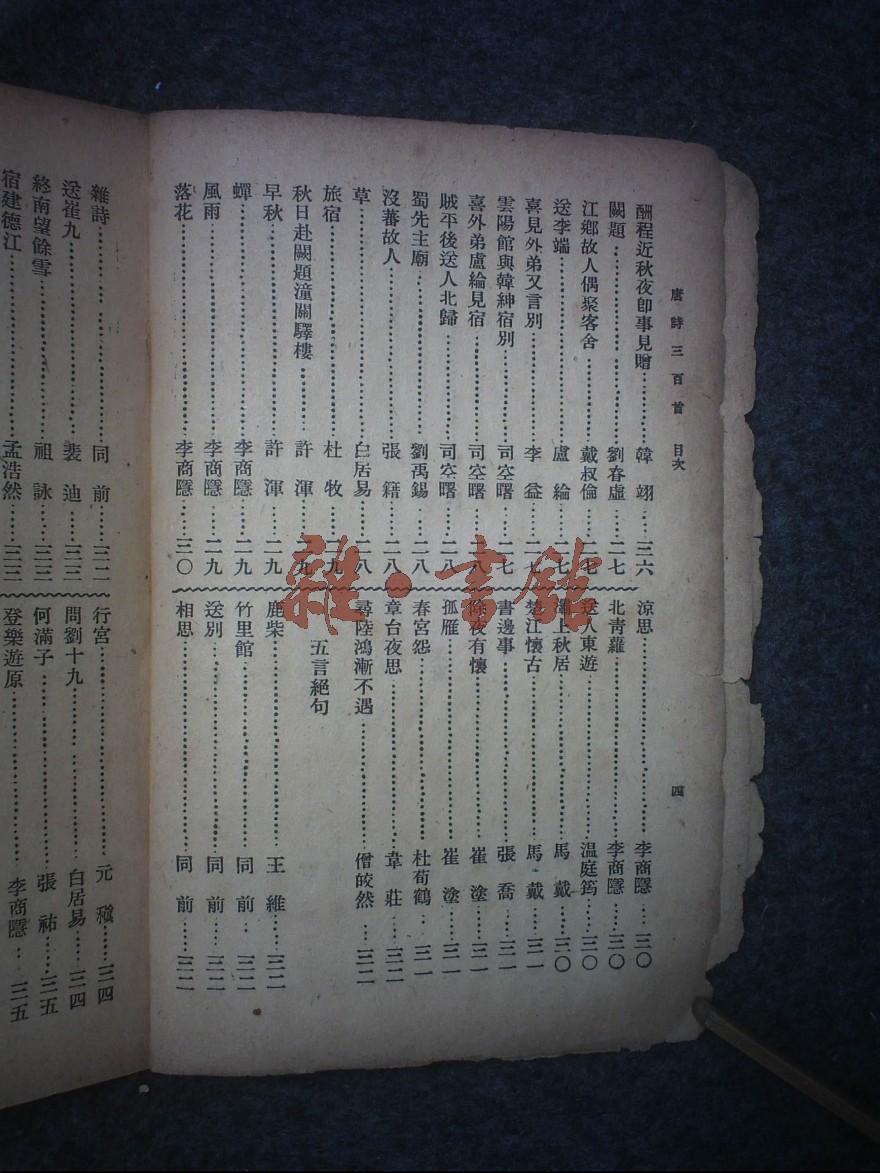 唐詩三百首 目次 四
酬程近秋夜卽事見贈………韓翊……三六
闕題………劉春虛……二七
江鄉故人偶聚客舍………戴叔倫……二七
送李端………盧綸……二七
喜見外弟又言別………李益……二七
雲陽館與韓紳宿別………司空曙……二七
喜外弟盧綸見宿………司空曙……二八
賊平後送人北歸………司空曙……二八
蜀先主廟………劉禹錫……二八
沒蕃故人………張籍……二八
草………白居易……二八
旅宿………杜牧……二九
秋日赴闕題潼關驛樓………許渾……二九
早秋………許渾……二九
蟬………李商隱……二九
風雨………李商隱……二九
落花………李商隱……三〇
涼思………李商隱……三〇
北靑蘿………李商隱……三〇
送人東遊………温庭筠……三〇
灞上秋居………馬戴……三〇
楚江懷古………馬戴……三一
書邊事………張喬……三一
除夜有懷………崔塗……三一
孤雁………崔塗……三一
春宮怨………杜荀鶴……三一
章台夜思………韋莊……三二
尋陸鴻漸不遇………僧皎然……三二
五言絕句
鹿柴………王維……三二
竹里館………同前……三二
送別………同前……三二
相思………同前……三二
雜詩………同前……三二
送崔九………裴迪……三三
終南望餘雪………祖詠……三三
宿建德江………孟浩然……三三
行宮………元稹……三四
問劉十九………白居易……三四
何滿子………張祜……三五
登樂遊原………李商隱……三五
雜·書館